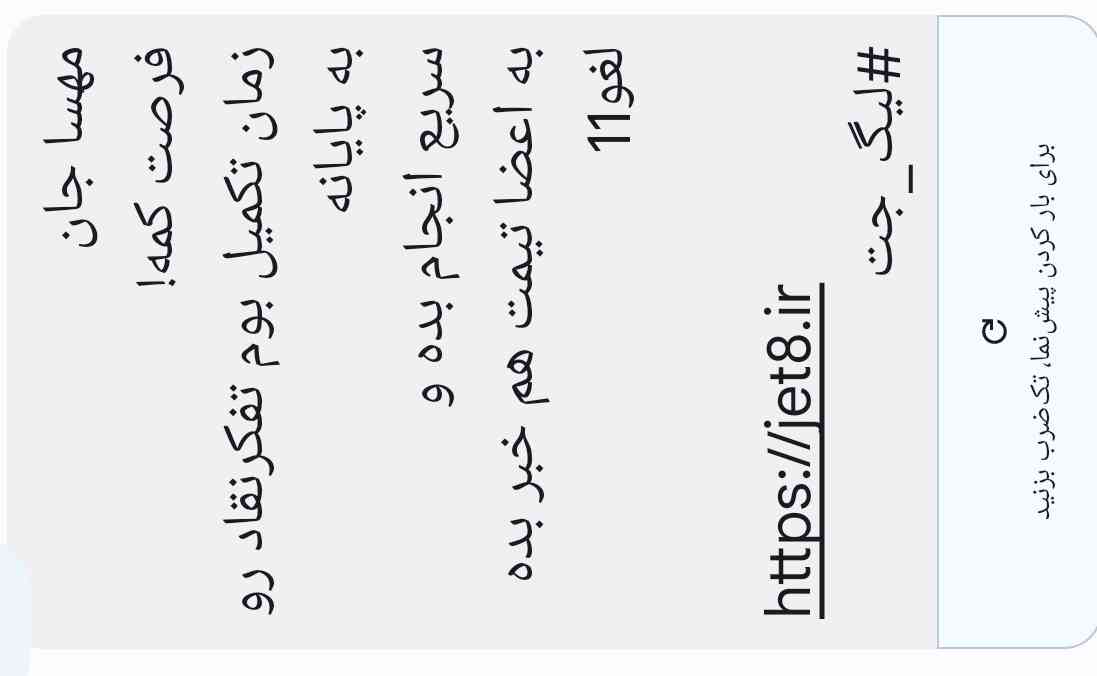 مهسا جان
فرصت کمه!
زمان تکمیل بوم تفکرنقاد رو
به پایانه
سریع انجام بده و
به اعضا تیمت هم خبر بده
لغو11
https://jet8.ir
#لیگ_جت
برای بار کردن پیش‌نما، تک‌ضرب بزنید